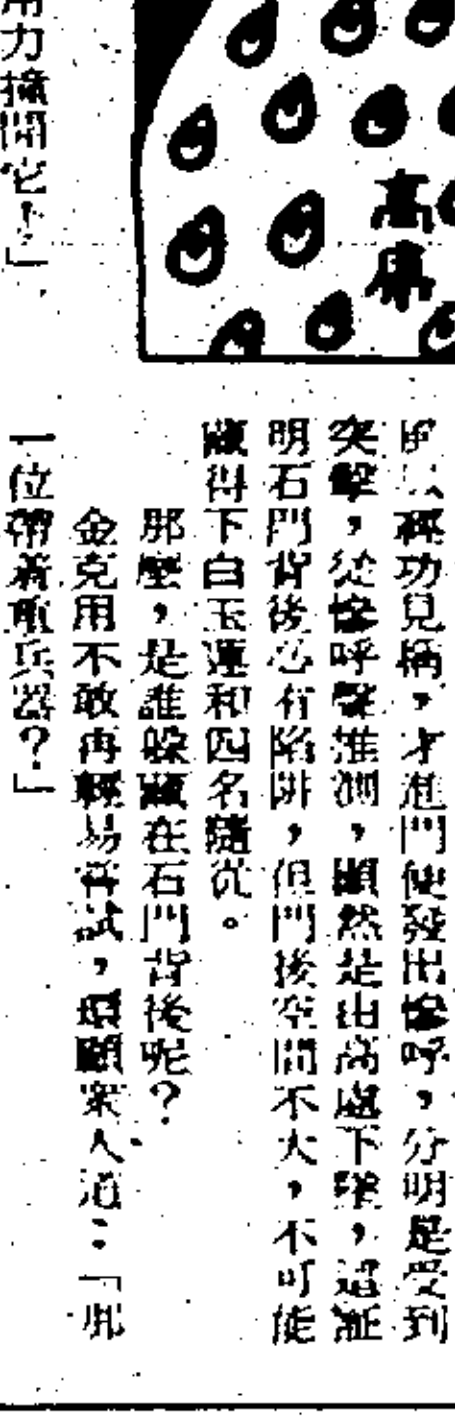 高庸
以輕功見稱，才進門便發出慘呼，分明是受到
突擊，從慘呼聲推測，顯然是由高處下擊，這証
明石門背後必有陷阱，但門後空間不大，不可能
藏得下白玉蓮和四名隨從。
那麼，是誰躲藏在石門背後呢？
金克用不敢再輕易嘗試，環顧衆人道：「那
用力撞開它！」
一位帶着重兵器？」